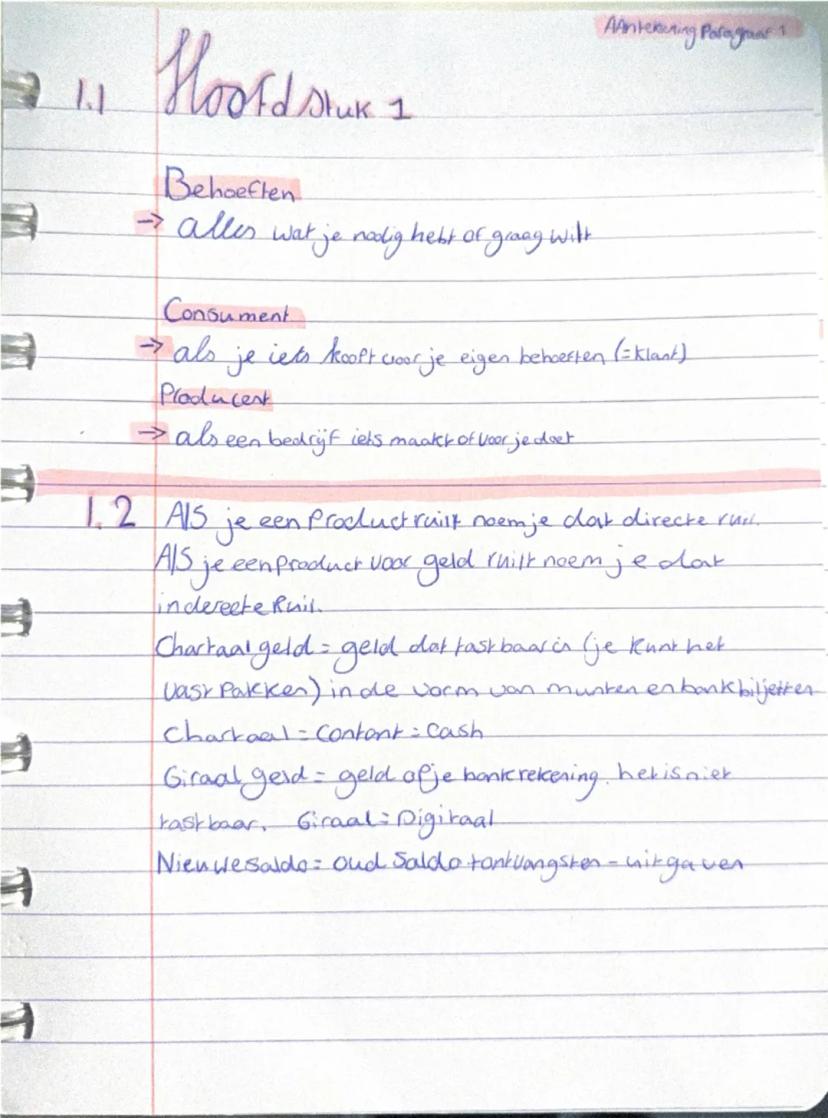 Aantekening Paragraaf 1
1.1 Hoofdstuk 1
Behoeften
→ alles wat je nodig hebt of graag wilt
Consument
→ als je iets koopt voor je eigen behoeften (= klant)
Producent
→ als een bedrijf iets maakt of voor je doet
1.2 Als je een product ruilt noem je dat directe ruil.
Als je een product voor geld ruilt noem je dat
indereete Ruil.
Chartaal geld = geld dat tastbaar is (je kunt het
vast pakken) in de vorm van munten en bankbiljetten
Chartaal = Contant = Cash
Giraal geld = geld op je bankrekening. het is niet
tastbaar. Giraal = Digitaal
Nieuwe saldo = oud saldo + ontvangsten - uitgaven